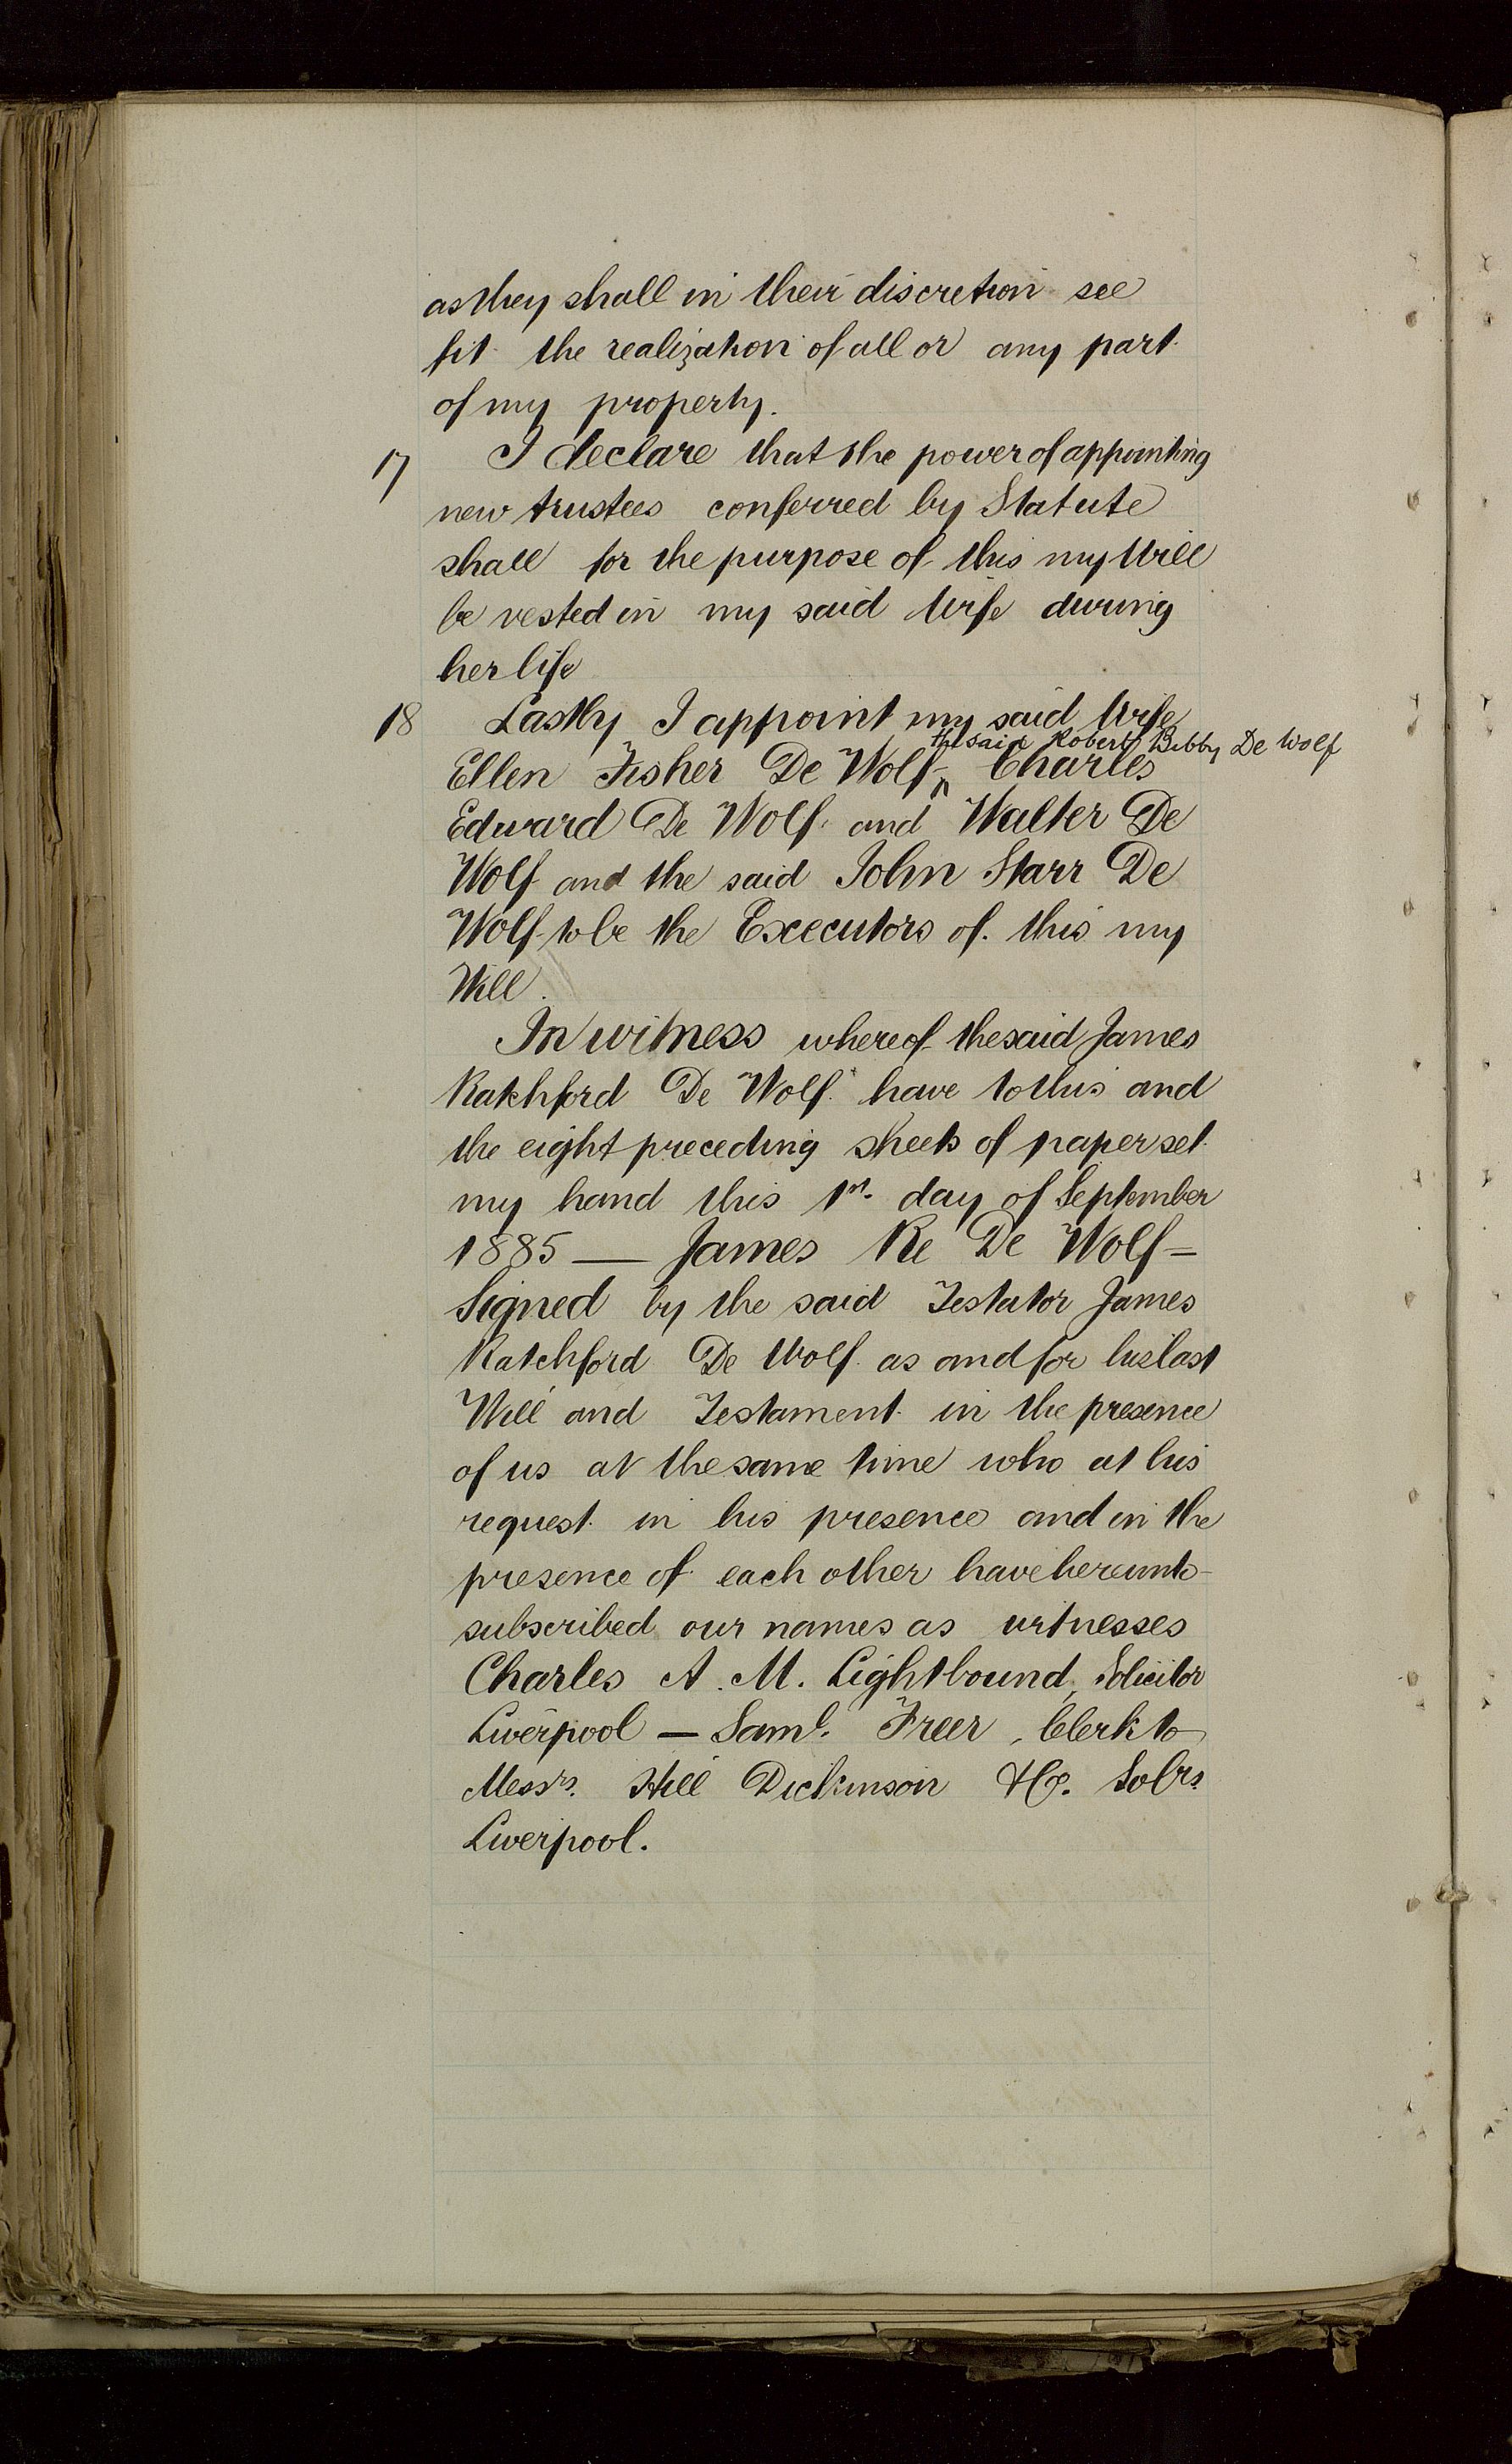 as they shall in their discretion see
fit the realization of all or any part
of my property.
17 I declare that the power of appointing
new trustees conferred by Statute
shall for the purpose of this my Will
be vested in my said Wife during
her life
18 Lastly I appoint my said Wife
the said Robert Bibby De Wolf
Ellen Fisher De Wolf ^ Charles
Edward De Wolf and Walter De
Wolf and the said John Starr De
Wolf to be the Executors of this my
Will.
In witness whereof the said James
Ratchford De Wolf have to this and
the eight preceding sheets of paper set
my hand this 1st. day of September
1885 — James Re De Wolf —
Signed by the said Testator James
Ratchford De Wolf as and for his last
Will and Testament in the presence
of us at the same time who at his
request in his presence and in the
presence of each other have hereunto
subscribed our names as witnesses
Charles A. M. Lightbound, Solicitor
Liverpool — Saml. Freer, Clerk to
Messrs. Hill Dickinson & Co. Solrs
Liverpool.